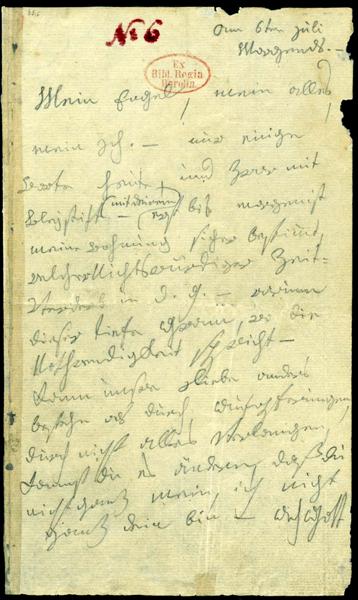 No 6
am 6ten juli
Morgends. –
Ex
Bibl. Regia
Berolin.
Mein Engel, mein alles
mein Ich. – nur einige
Worte heute, und zwar mit
Bleystift – (mit deinem) – bis morgen ist
meine wohnung sicher bestimmt,
welcher Nichtswürdiger Zeit-
Verderb in d. g. – warum
dieser tiefe Gram, wo die
Nothwendigkeit spricht –
Kann unsre Liebe anders
bestehn als durch Aufopferungen,
durch nicht alles verlangen,
kannst du es ändern, daß du
nicht ganz mein, ich nicht
ganz dein bin – Ach Gott